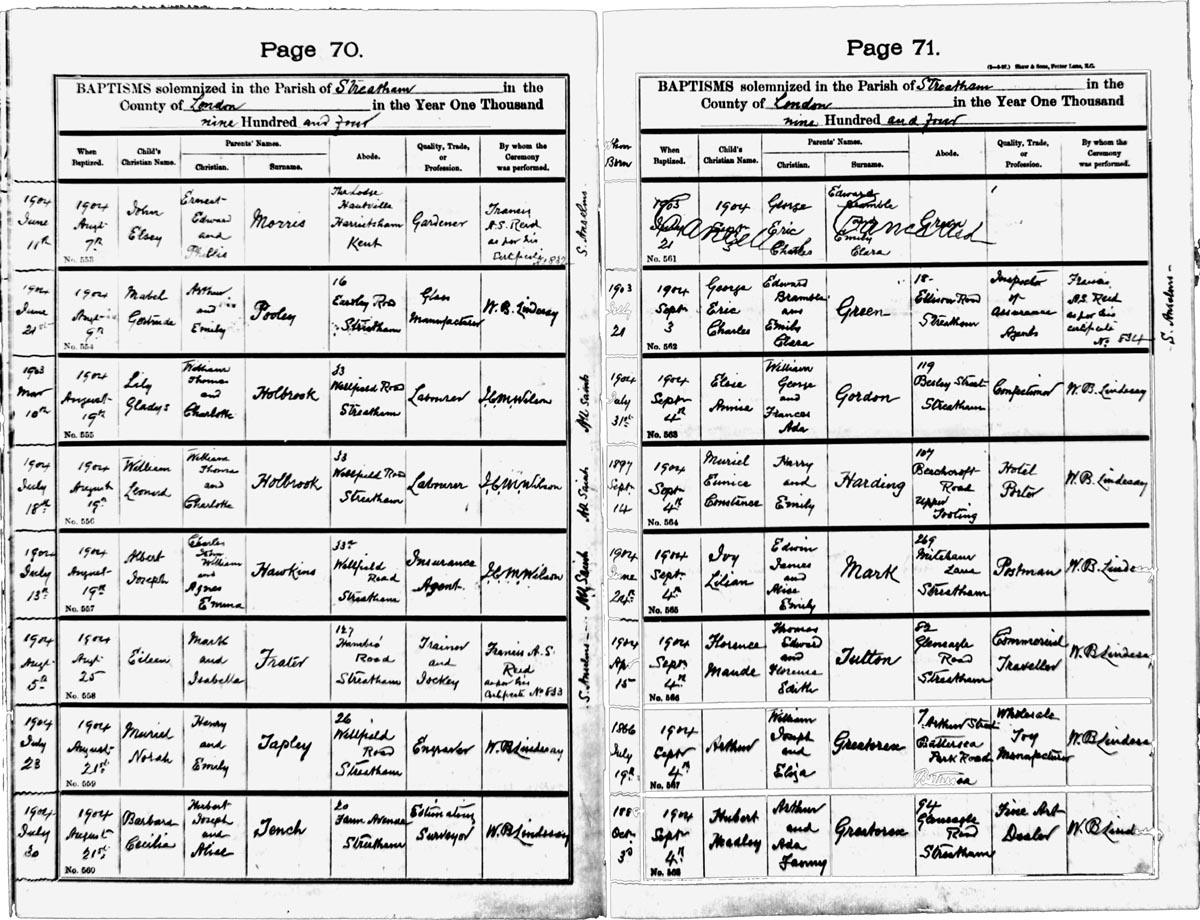 Page 70.
BAPTISMS solemnized in the Parish of Streatham in the
County of London in the Year One Thousand
nine Hundred and four
When Baptized.
Child's Christian Name.
Parents' Names.
Christian.
Surname.
Abode.
Quality, Trade, or Profession.
By whom the Ceremony was performed.
1904 June 11th
1904 Augt 7th
John Elsey
Ernest Edward and Phillis
Morris
The Lodge Hautville Harrietsham Kent
Gardener
Francis A.S. Reed as per his Certificate No 832
S. Anselms
No. 553
1904 June 21st
1904 Augt 9th
Mabel Gertrude
Arthur and Emily
Pooley
16 Road Streatham
Glass Manufacturer
W.B. Lindesay
No. 554
1903 Mar 10th
1904 August 19th
Lily Gladys
William Thomas and Charlotte
Holbrook
33 Wellfield Road Streatham
Labourer
J.C.M. Wilson
All Saints
No. 555
1904 July 18th
1904 August 19th
William Leonard
William Thomas and Charlotte
Holbrook
33 Wellfield Road Streatham
Labourer
J.C.M. Wilson
All Saints
No. 556
1904 July 13th
1904 August 19th
Albert Joseph
Charles John William and Agnes Emma
Hawkins
33a Wellfield Road Streatham
Insurance Agent.
J.C.M. Wilson
All Saints
No. 557
1904 Augt 5th
1904 Augt 25
Eileen
Mark and Isabella
Frater
127 Road Streatham
Trainer and Jockey
Francis A.S. Reed as per his Certificate No 833
S. Anselms
No. 558
1904 July 23
1904 August 21st
Muriel Norah
Henry and Emily
Tapley
26 Wellfield Road Streatham
Engraver
W.B. Lindesay
No. 559
1904 July 30
1904 August 21st
Barbara Cecilia
Herbert Joseph and Alice
Tench
20 Avenue Streatham
Estimating Surveyor
W.B. Lindesay
No. 560
Page 71.
Shaw & Sons, Fetter Lane, E.C.
BAPTISMS solemnized in the Parish of Streatham in the
County of London in the Year One Thousand
nine Hundred and four
When Born
When Baptized.
Child's Christian Name.
Parents' Names.
Christian.
Surname.
Abode.
Quality, Trade, or Profession.
By whom the Ceremony was performed.
1903 July 21
1904 Sept 3
George Eric Charles
Edward Bramble and Emily Clara
Green
Cancelled
Cancelled
No. 561
1903 July 21
1904 Sept 3
George Eric Charles
Edward Bramble and Emily Clara
Green
18 Ellison Road Streatham
Inspector of Assurance Agents
Francis A.S. Reed as per his certificate No 834
S. Anselms
No. 562
1904 July 31st
1904 Sept 4th
Elsie Annice
William George and Frances Ada
Gordon
119 Besley Street Streatham
Confectioner
W.B. Lindesay
No. 563
1897 Sept 14
1904 Sept 4th
Muriel Eunice Constance
Harry and Emily
Harding
107 Beechcroft Road Upper Tooting
Hotel Porter
W.B. Lindesay
No. 564
1904 June 24th
1904 Sept 4th
Ivy Lilian
Edwin James and Alice Emily
Mark
269 Mitcham Lane Streatham
Postman
W.B. Lindesay
No. 565
1904 Apr 15
1904 Sept 4th
Florence Maude
Thomas Edward and Florence Edith
Tutton
82 Gleneagle Road Streatham
Commercial Traveller
W.B. Lindesay
No. 566
1866 July 19th
1904 Sept 4th
Arthur
William Joseph and Eliza
Greatorex
7 Arthur Street Battersea Park Road Battersea
Wholesale Toy Manufacturer
W.B. Lindesay
No. 567
Oct 3rd
1904 Sept 4th
Hubert Madley
Arthur and Ada Fanny
Greatorex
94 Gleneagle Road Streatham
Fine Art Dealer
W.B. Lind
No. 568